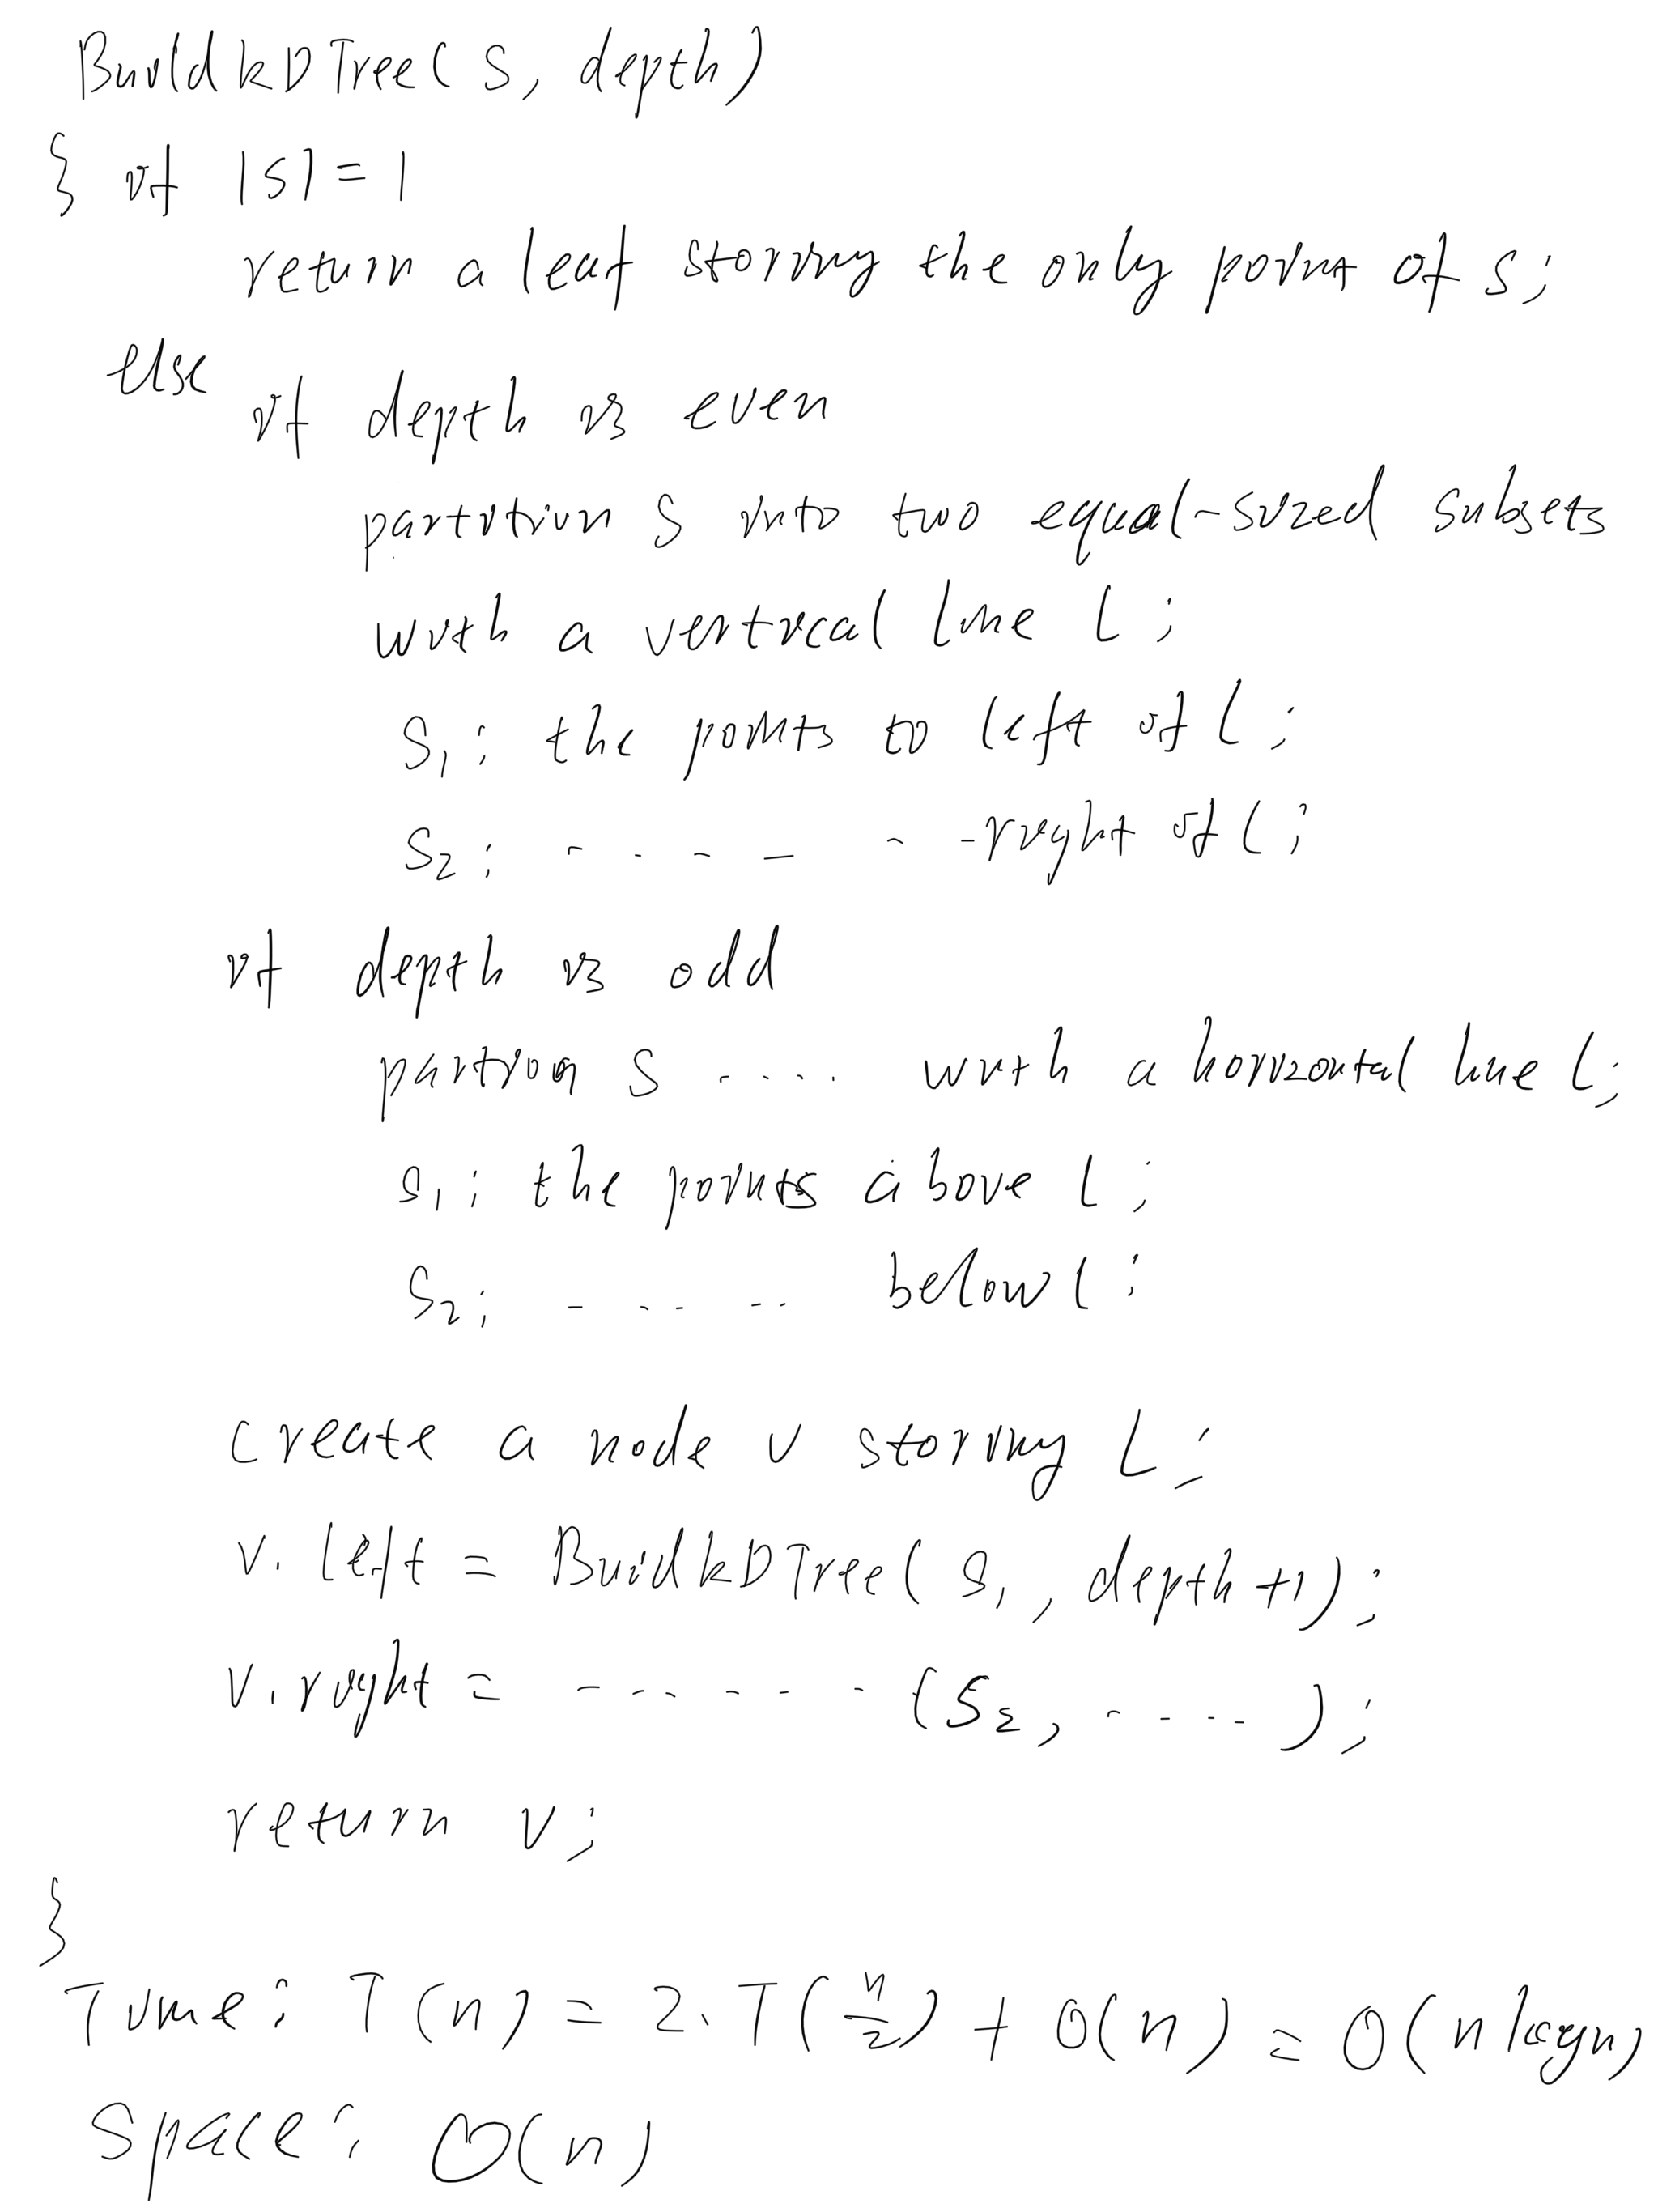 BuildkDTree(S, depth)
{ if |S| = 1
return a leaf storing the only point of S;
else
if depth is even
partition S into two equal-sized subsets
with a vertical line l;
S1: the points to left of l;
S2: - - - - - - right of l;
if depth is odd
partition S .... with a horizontal line l;
S1: the points above l;
S2: - - - - - below l;
create a node v storing L;
v.left = BuildkDTree(S1, depth+1);
v.right = - - - - - - (S2, - - - -);
return v;
}
Time: T(n) = 2·T(n/2) + O(n) = O(n logn)
Space: O(n)